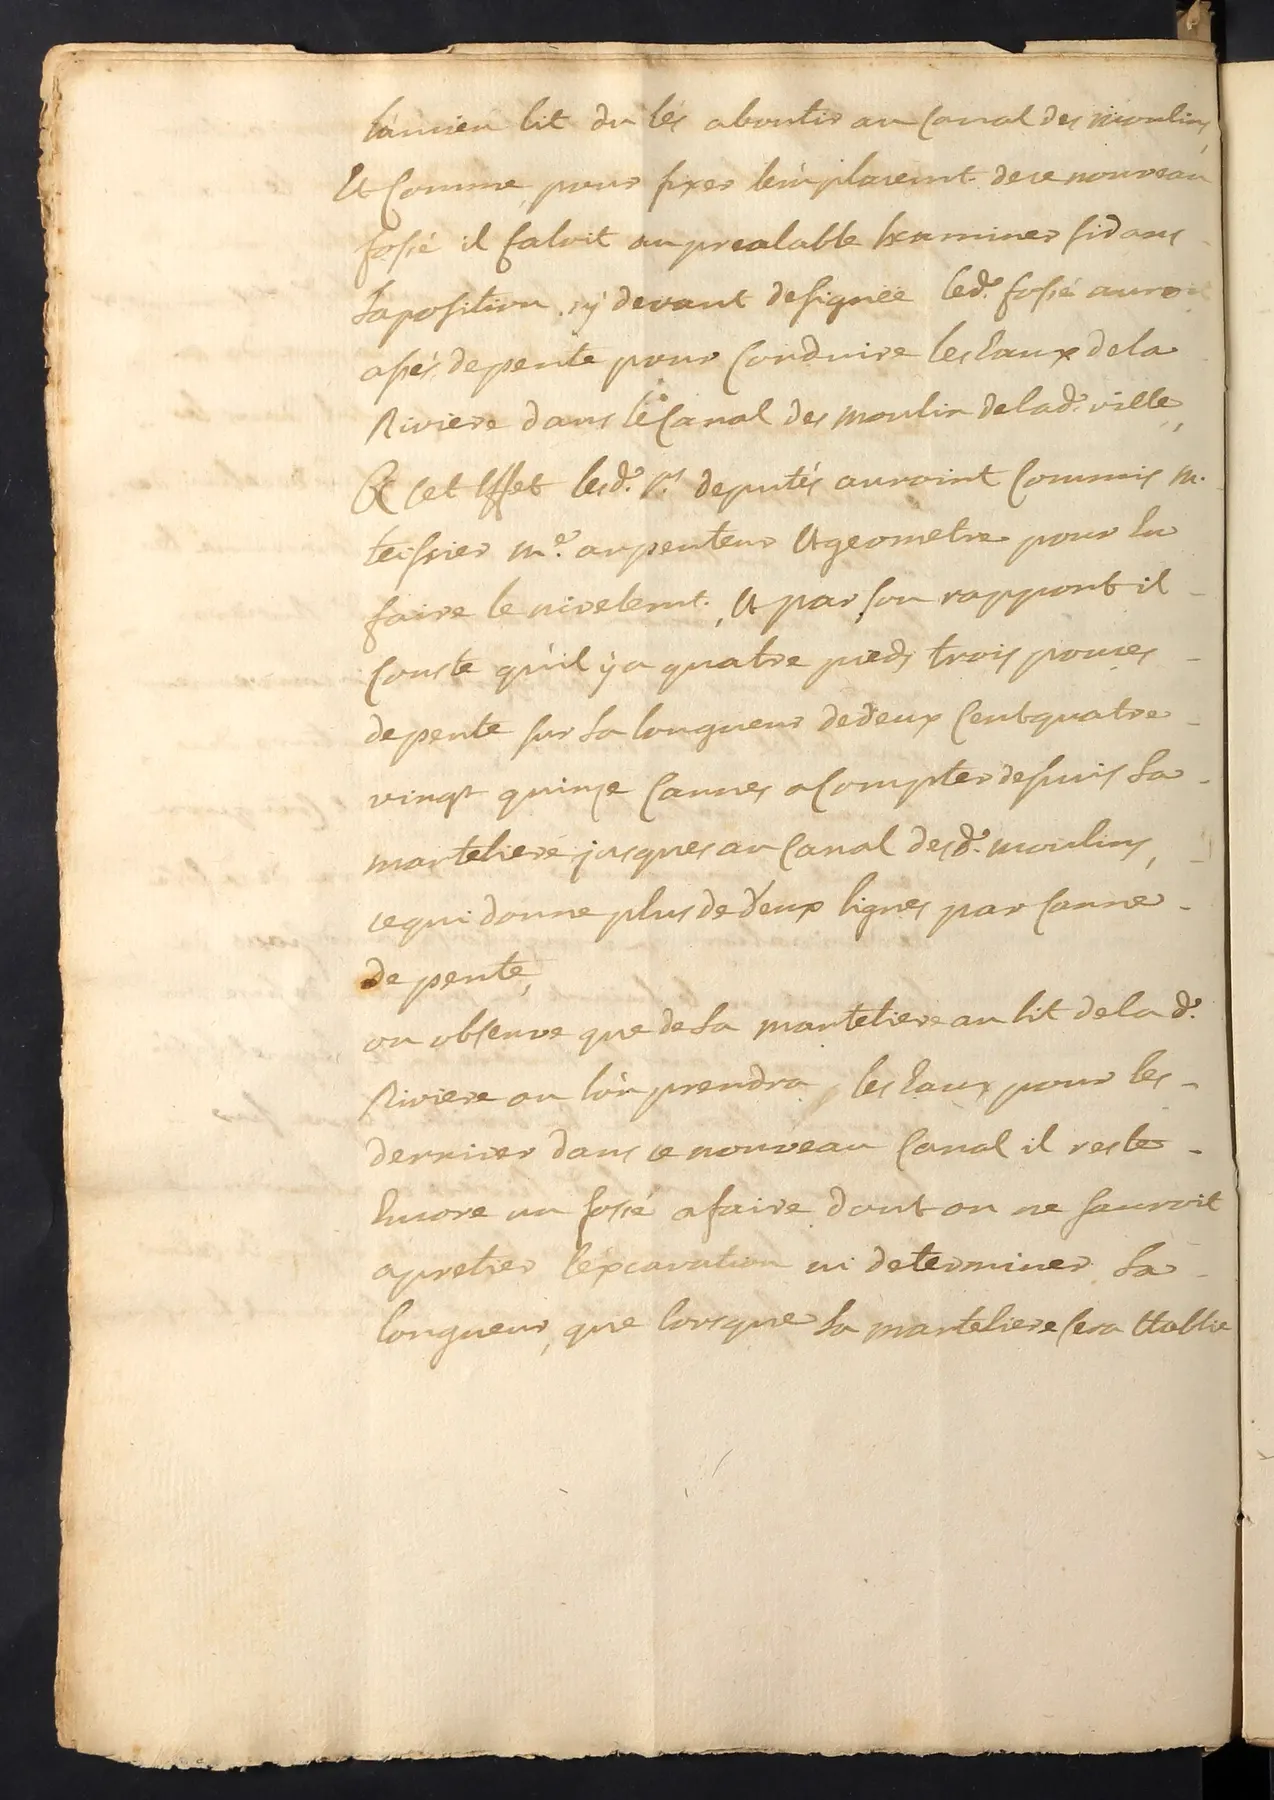 l'ancien lit du lés aboutir au Canal des moulins,
Et Comme, pour fixer l'emplacemt. de ce nouveau
fossé il faloit au prealable Examiner si dans
sa position cy devant designée led. fossé auroit
assés de pente pour Conduire les Eaux de la
Riviere dans le Canal des moulin de lad. ville,
A cet Effet lesd. srs deputés auroint Commis m.
teissier me. arpenteur Et geometre pour En
faire le nivelemt. Et par son rapport il
Conste qu'il y a quatre pieds trois pouces
de pente sur la longueur de deux Cent quatre
vingt quinze Cannes a Compter depuis la
marteliere jusques au Canal desd. moulins,
ce qui donne plus de deux lignes par Canne
de pente,
on observe que de la marteliere au lit de la d.
Riviere ou l'on prendra, les Eaux pour les
deriver dans ce nouveau Canal il reste
Encore un fossé a faire dont on ne sauroit
apretier l'excavation ni determiner sa
longueur, que lorsque la marteliere sera Etablie